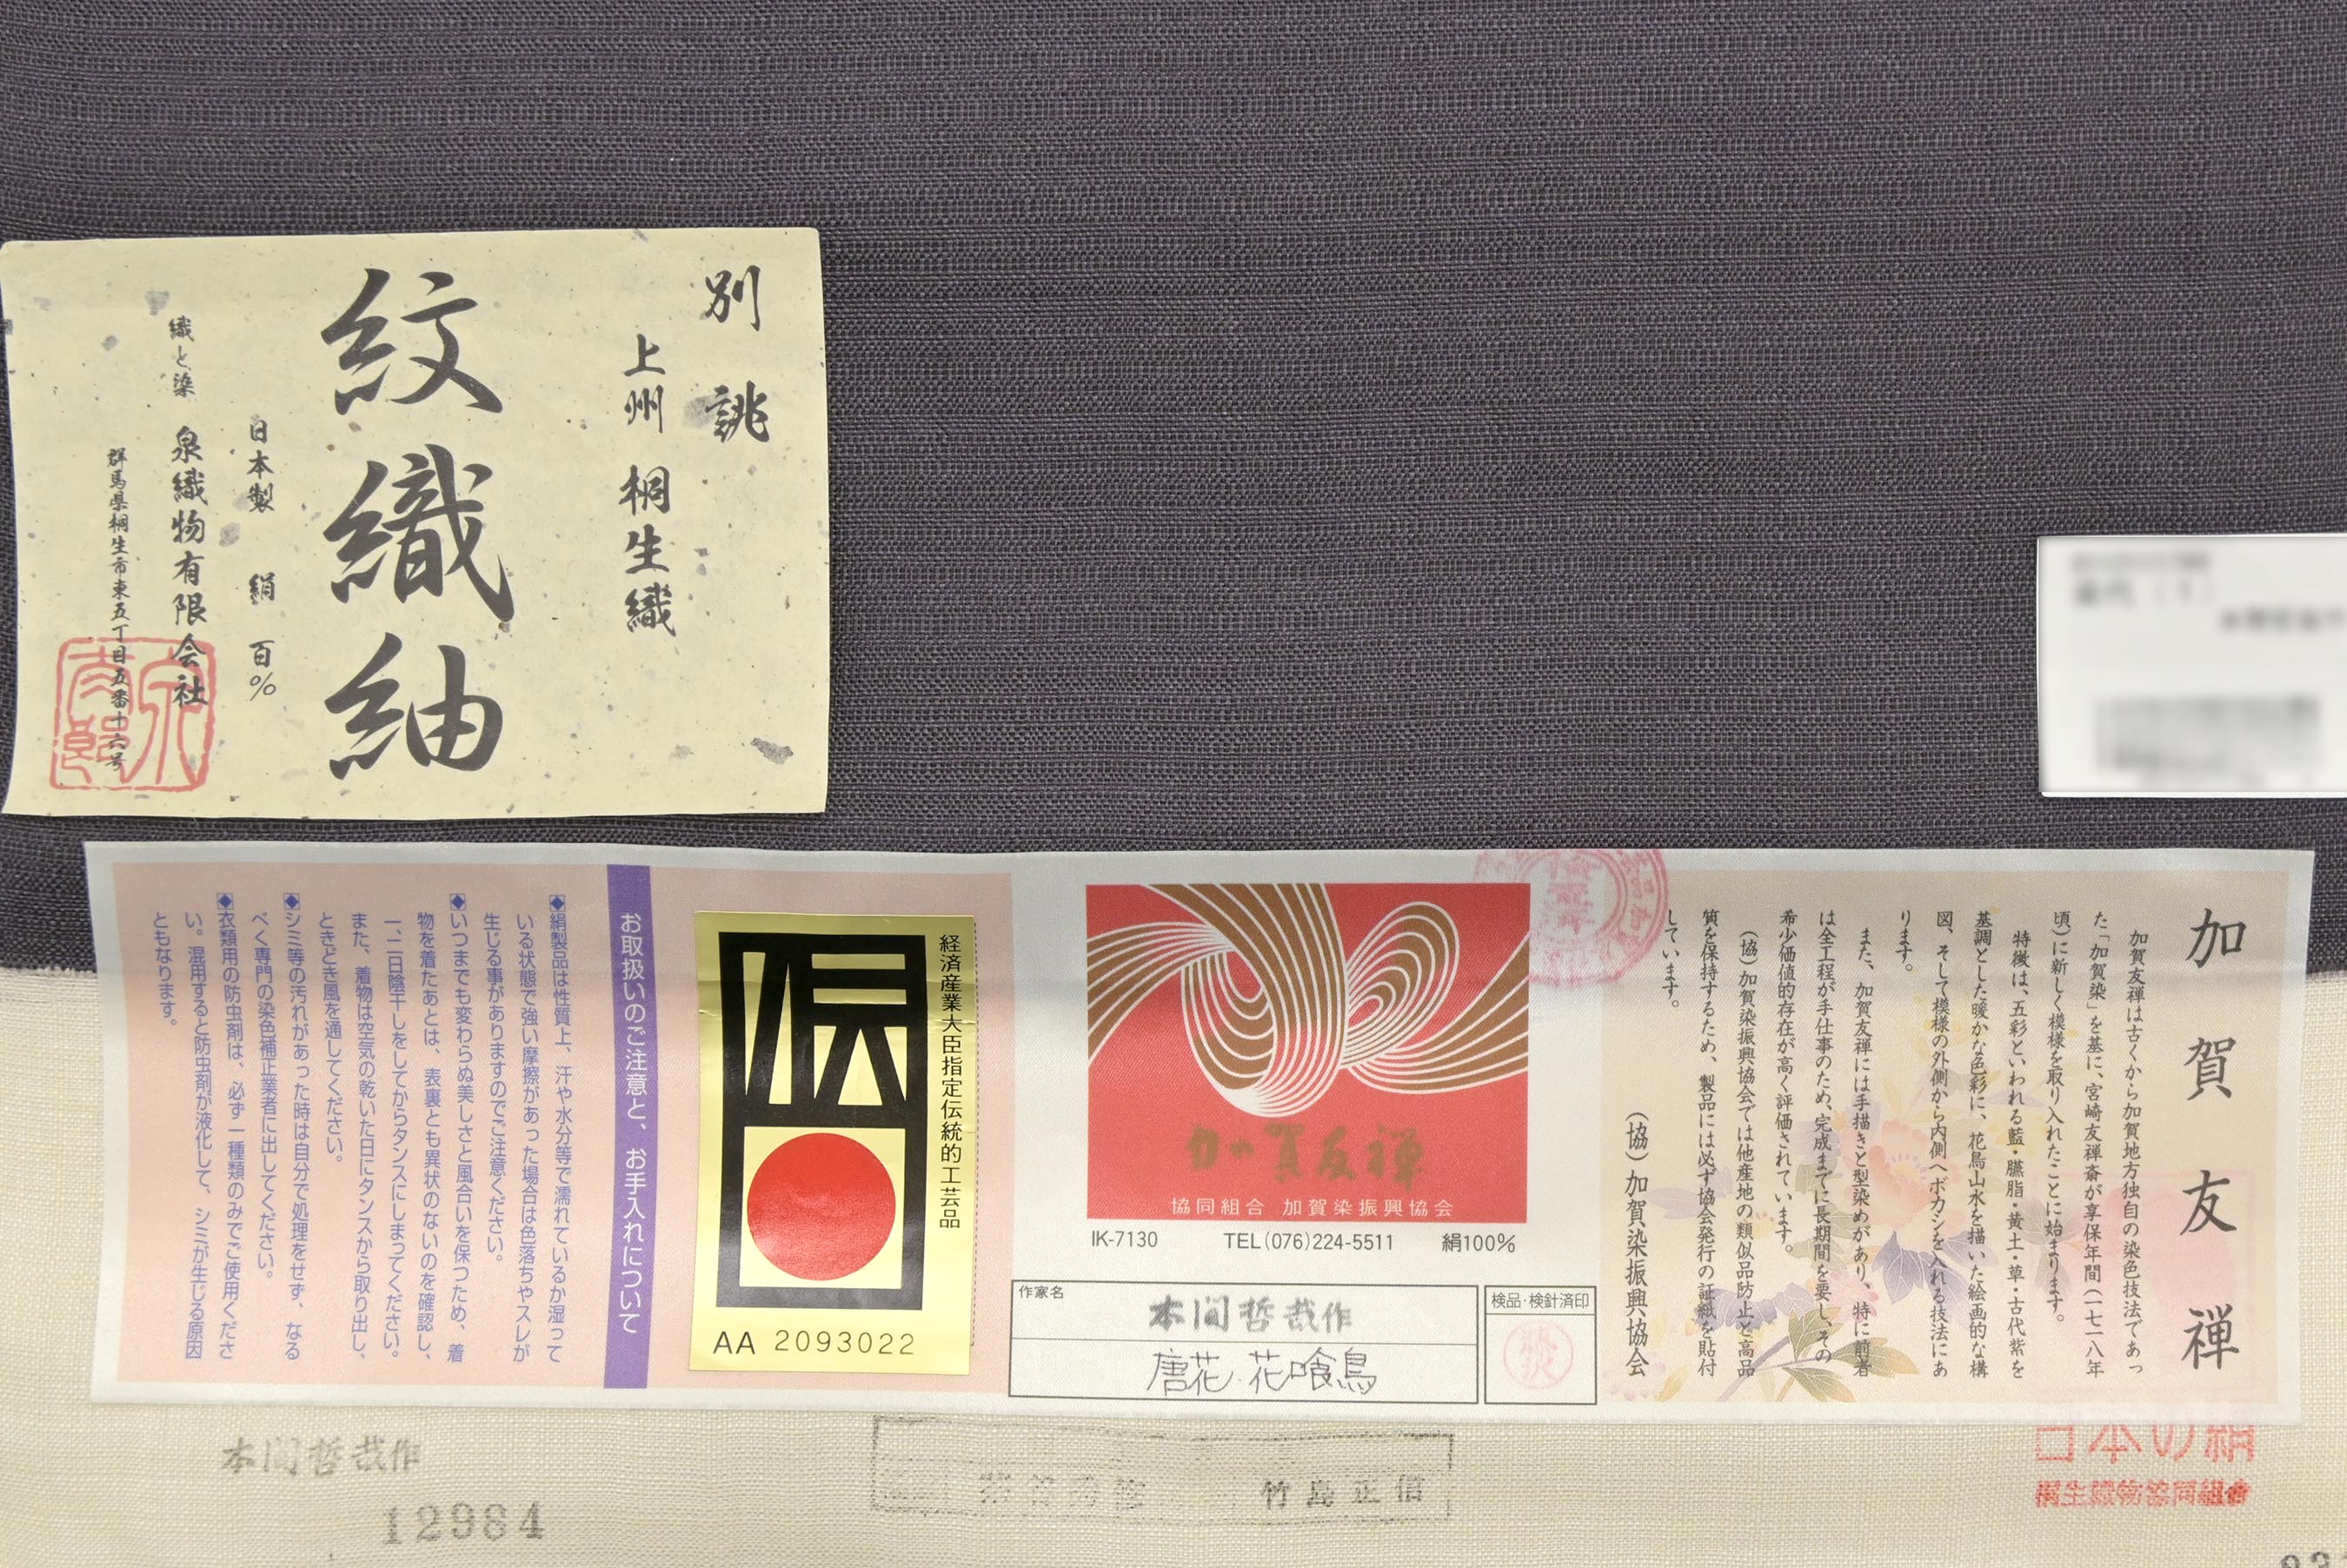 別誂
上州 桐生織
紋織紬
日本製 絹 百%
織と染 泉織物有限会社
群馬県桐生市東五丁目五番十六号
加賀友禅
加賀友禅は古くから加賀地方独自の染色技法であっ
た「加賀染」を基に、宮崎友禅斎が享保年間(一七一八年
頃)に新しく模様を取り入れたことに始まります。
特徴は、五彩といわれる藍・臙脂・黄土・草・古代紫を
基調とした暖かな色彩に、花鳥山水を描いた絵画的な構
図、そして模様の外側から内側へボカシを入れる技法にあ
ります。
また、加賀友禅には手描きと型染めがあり、特に前者
は全工程が手仕事のため、完成までに長期間を要し、その
希少価値的存在が高く評価されています。
(協)加賀染振興協会では他産地の類似品防止と高品
質を保持するため、製品には必ず協会発行の証紙を貼付
しています。
(協)加賀染振興協会
加賀友禅
協同組合 加賀染振興協会
IK-7130 TEL(076)224-5511 絹100%
作家名
本間哲哉作
唐花・花喰鳥
検品・検針済印
経済産業大臣指定伝統的工芸品
伝
AA 2093022
お取扱いのご注意と、お手入れについて
◆絹製品は性質上、汗や水分等で濡れているか湿って
いる状態で強い摩擦があった場合は色落ちやスレが
生じる事がありますのでご注意ください。
◆いつまでも変わらぬ美しさと風合いを保つため、着
物を着たあとは、表裏とも異状のないのを確認し、
一、二日陰干しをしてからタンスにしまってください。
また、着物は空気の乾いた日にタンスから取り出し、
ときどき風を通してください。
◆シミ等の汚れがあった時は自分で処理をせず、なる
べく専門の染色補正業者に出してください。
◆衣類用の防虫剤は、必ず一種類のみでご使用くださ
い。混用すると防虫剤が液化して、シミが生じる原因
ともなります。
本間哲哉作
12984
竹島正信
日本の絹
桐生織物協同組合